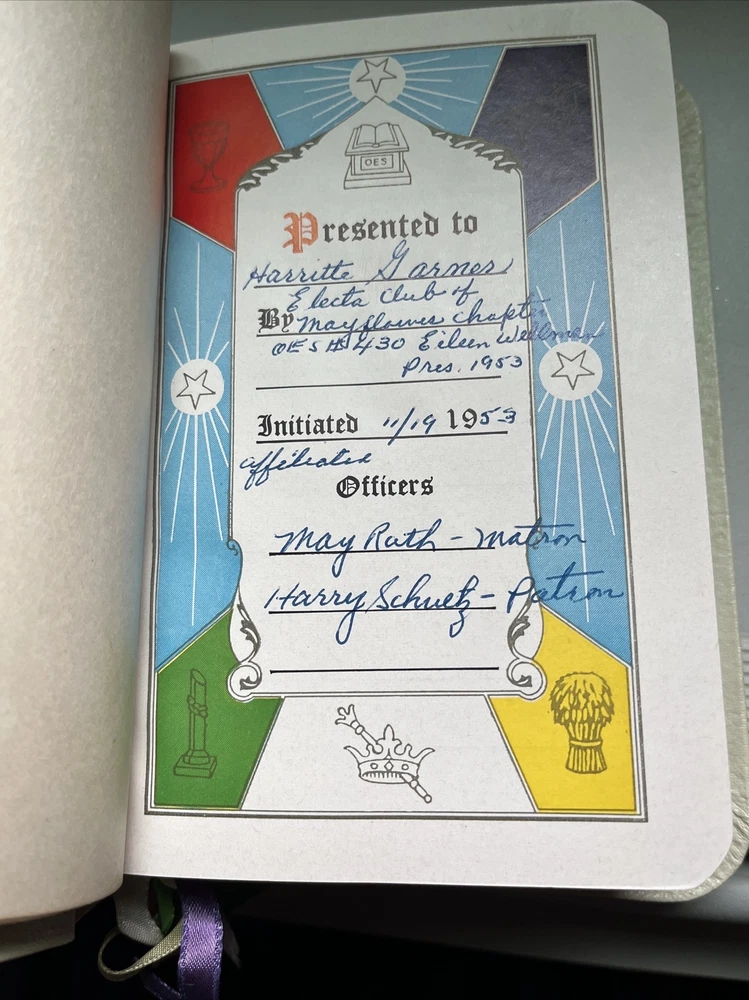 OES
Presented to
Harritte Garner
Electa Club of
By Mayflower Chapter
OES # 430 Eileen Wellman
Pres. 1953
Initiated 11/19 1953
affiliated
Officers
May Rath - Matron
Harry Schuetz - Patron